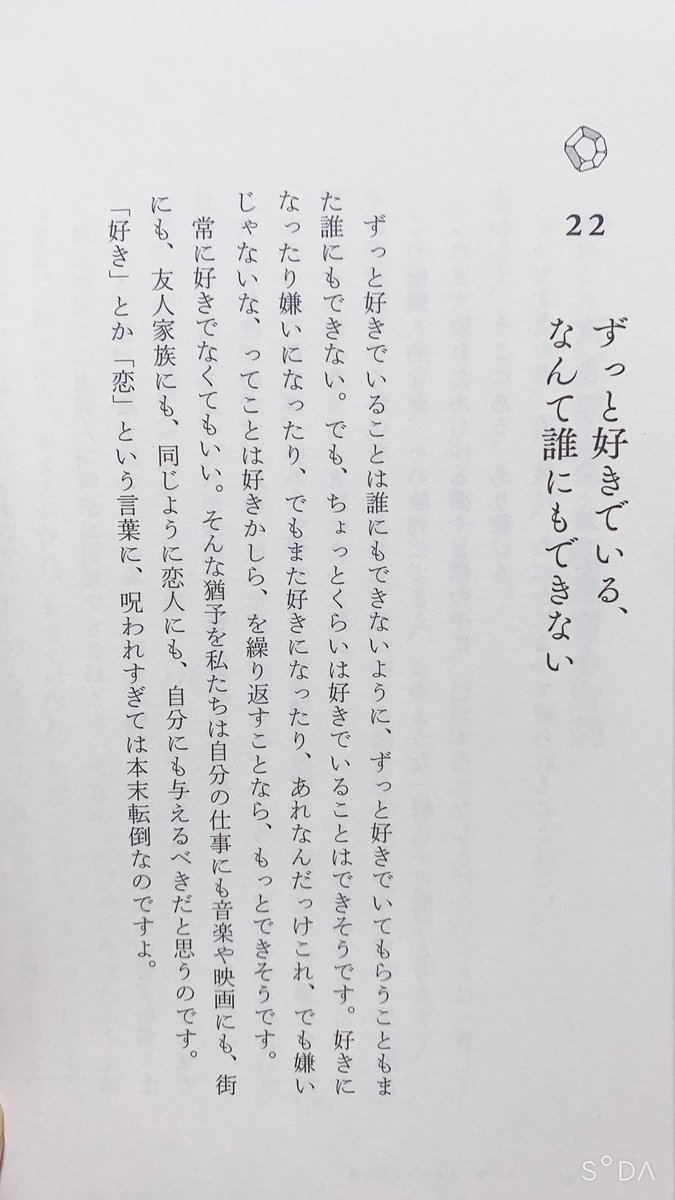 22
ずっと好きでいる、
なんて誰にもできない
ずっと好きでいることは誰にもできないように、ずっと好きでいてもらうこともま
た誰にもできない。でも、ちょっとくらいは好きでいることはできそうです。好きに
なったり嫌いになったり、でもまた好きになったり、あれなんだっけこれ、でも嫌い
じゃないな、ってことは好きかしら、を繰り返すことなら、もっとできそうです。
常に好きでなくてもいい。そんな猶予を私たちは自分の仕事にも音楽や映画にも、街
にも、友人家族にも、同じように恋人にも、自分にも与えるべきだと思うのです。
「好き」とか「恋」という言葉に、呪われすぎては本末転倒なのですよ。
SODA